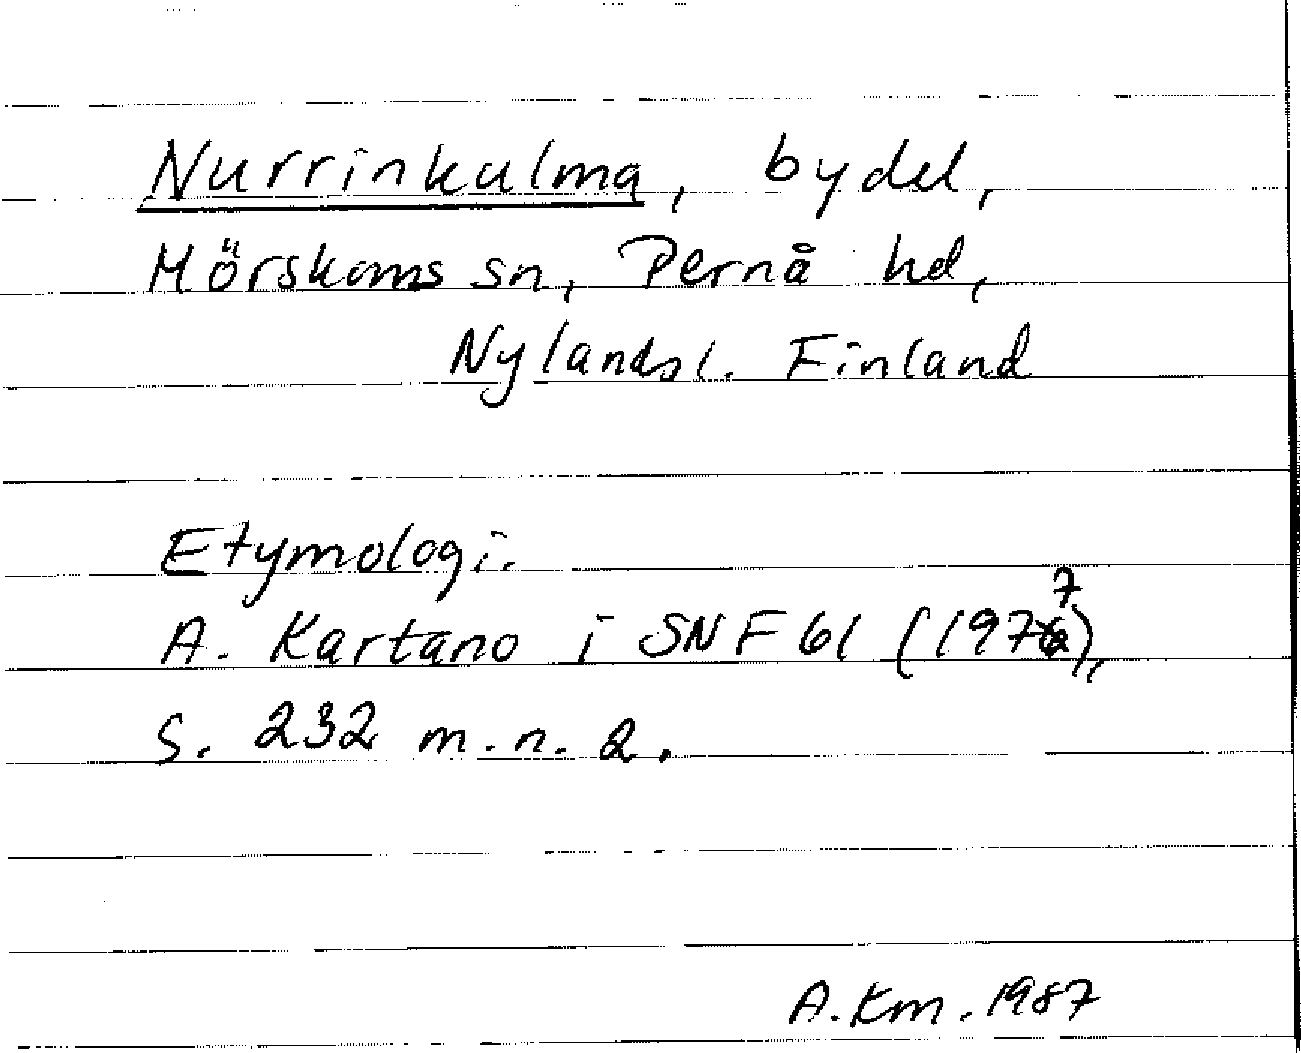 Nurrinkulma, bydel,
Mörskoms sn, Pernå hd,
Nylandsl. Finland
Etymologi.
A. Kartano i SNF 61 (1977),
s. 232 m. n. 2.
A. Km. 1987